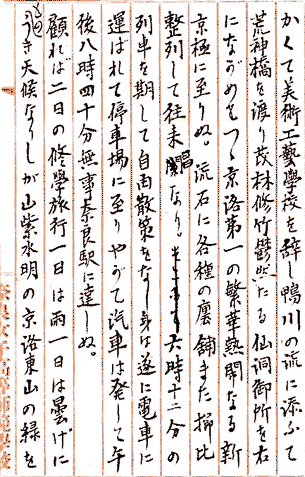 かくて美術工藝學校を辞し鴨川の流に添ふて
荒神橋を渡り茂林修竹鬱然たる仙洞御所を右
にながめつゝ京洛第一の繁華熱閙なる新
京極に至りぬ。流石に各種の廛舗また櫛比
整列して往来 なり 六時十二分の
列車を期して自由散策をなし身は遂に電車に
運ばれて停車場に至りやがて汽車は発して午
後八時四十分無事奈良駅に達しぬ。
顧れば二日の修學旅行一日は雨一日は曇げに
うき天候なりしが山紫水明の京洛東山の緑を